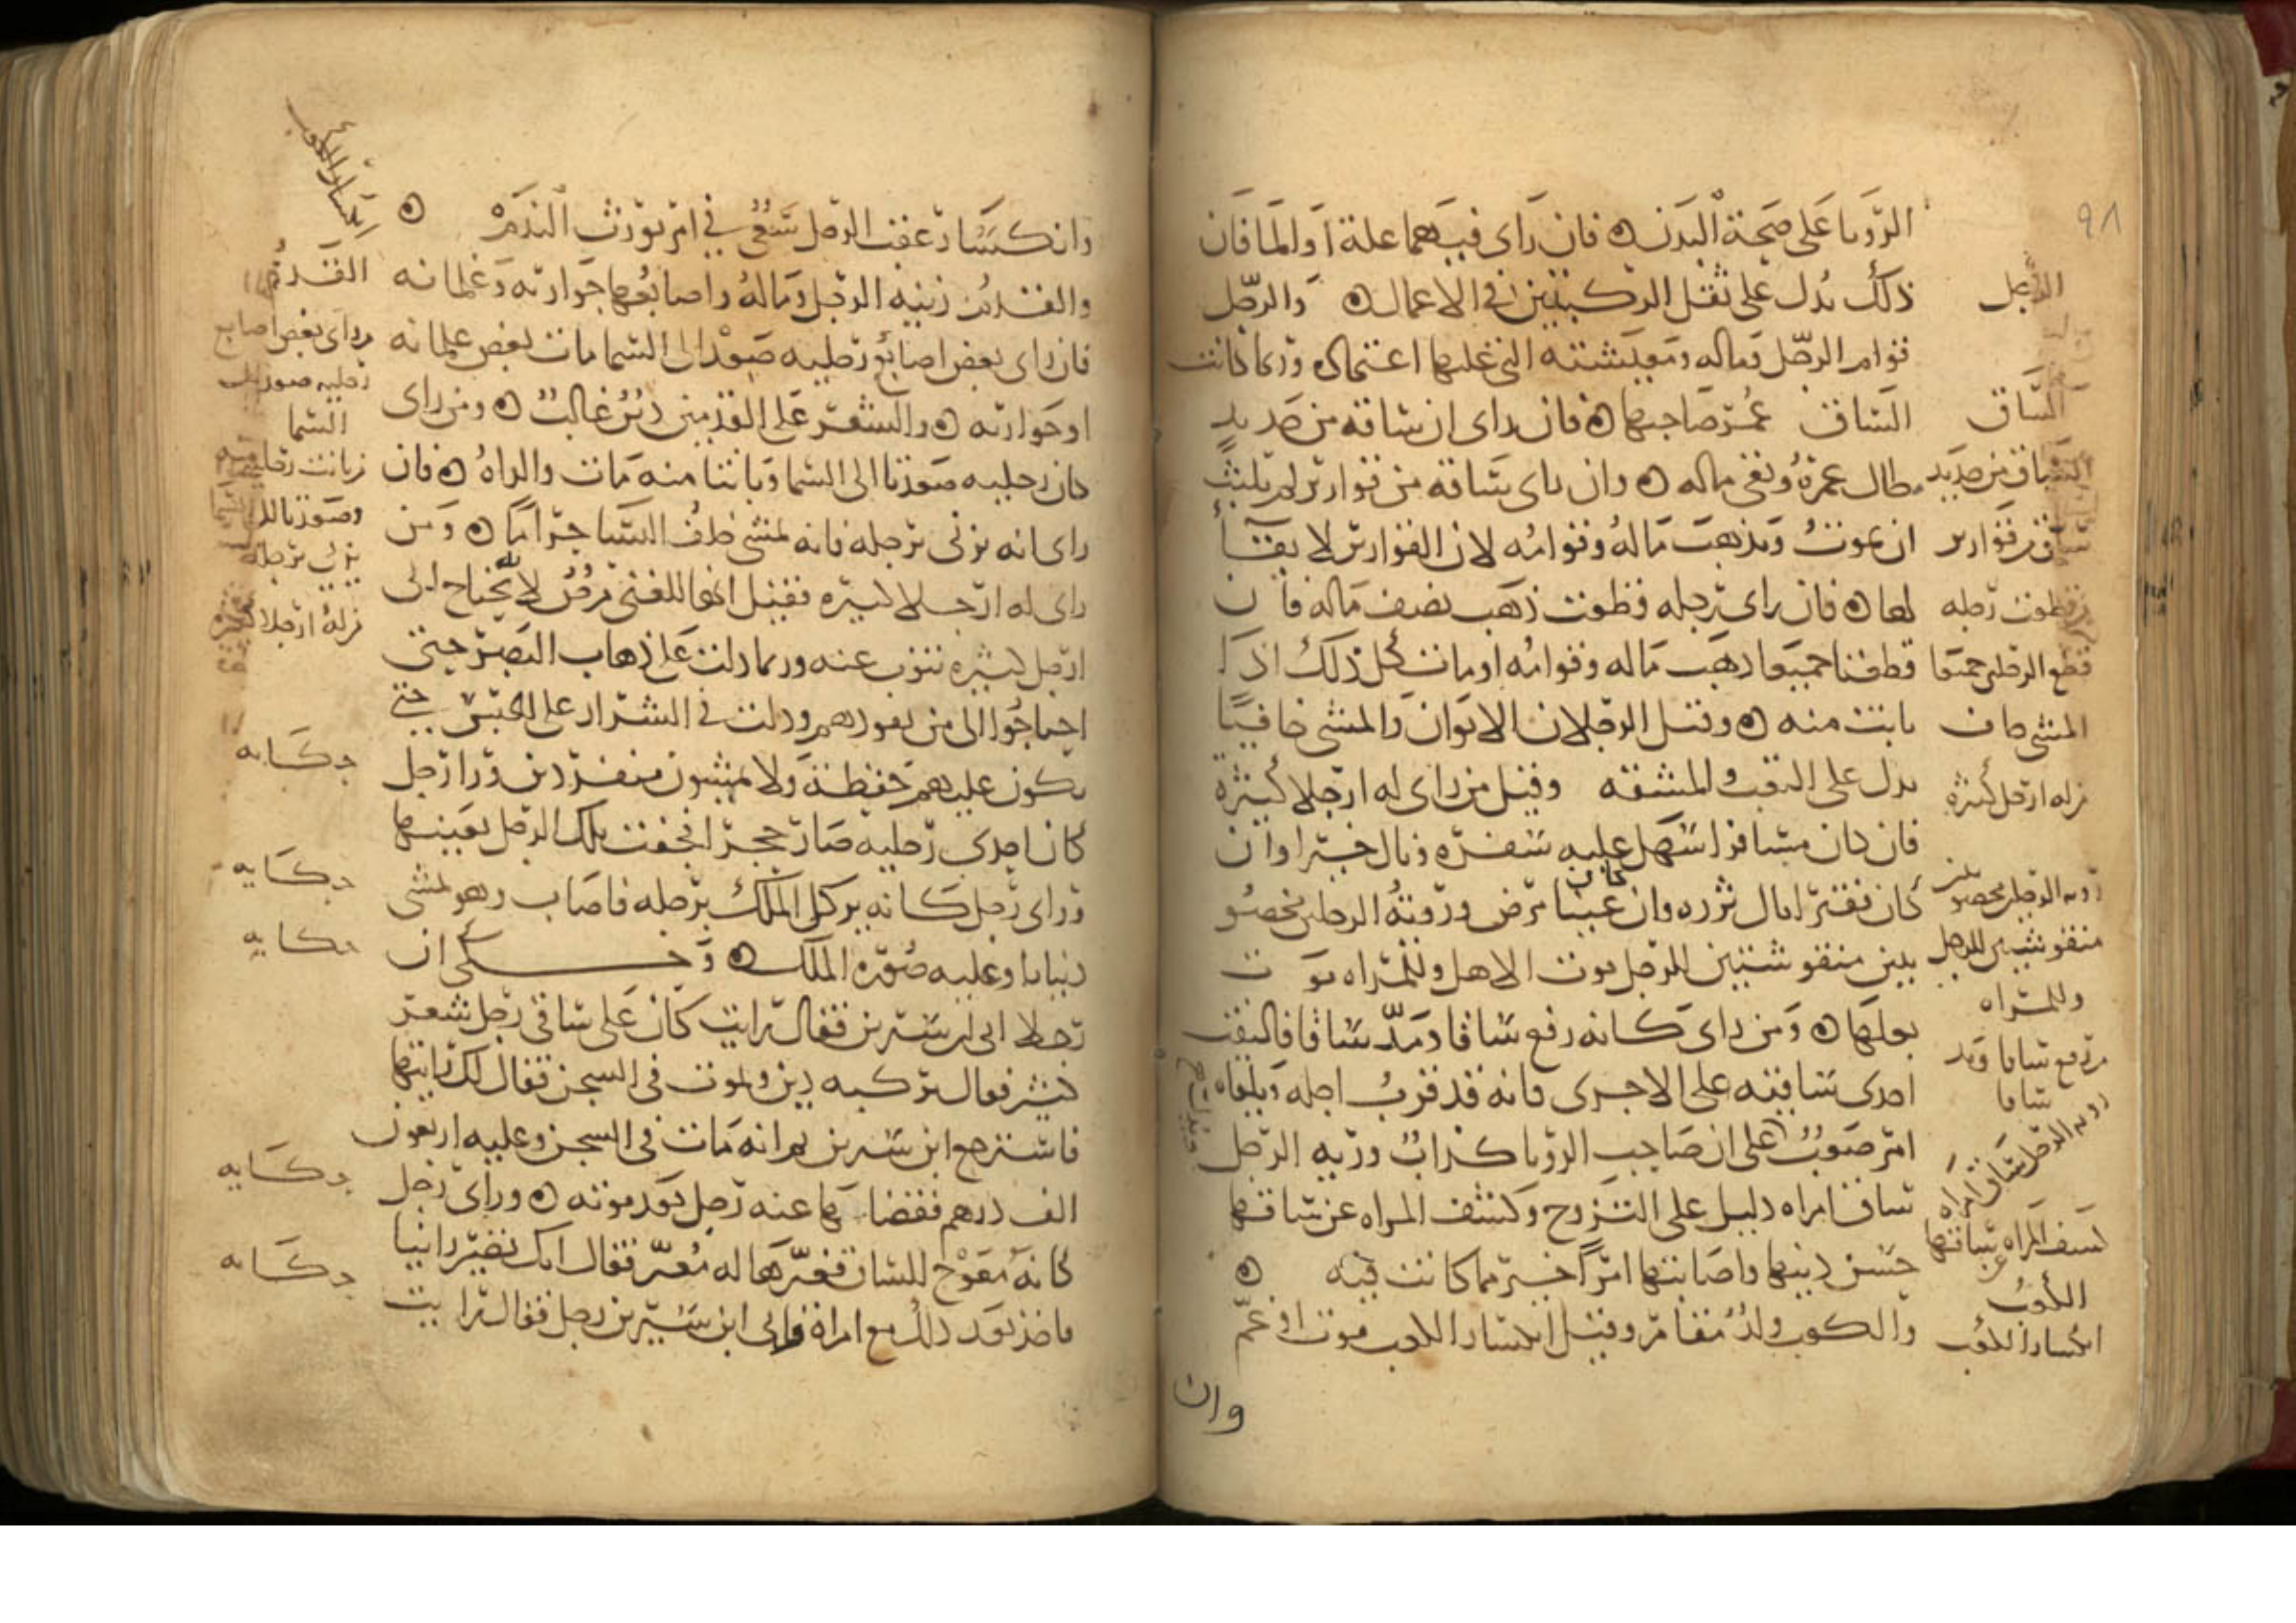 ٩٨
الرويا على صحة البدن ۞ فان راى فيهما علة او الما فان
ذلك يدل على ثقل الركبتين في الاعمال ۞ والرجل
قوام الرجل وماله ومعيشته التي عليها اعتماده وربما كانت
الساق عمر صاحبها ۞ فان راى ان ساقه من حديد
طال عمره وبقى ماله ۞ وان راى ساقه من قوارير لم يلبث
ان يموت ويذهب ماله وقوامه لان القوارير لا بقاء
لها ۞ فان راى رجله قطعت ذهب نصف ماله فان
قطعتا جميعا ذهب ماله وقوامه او مات كل ذلك اذا
بانت منه ۞ وقيل الرجلان الابوان والمشي حافيا
يدل على التعب والمشقة وقيل من راى له ارجلا كثيرة
فان كان مسافرا سهل عليه سفره ونال خيرا وان
كان فقيرا نال ثروه وان كان غنيا مرض ورؤية الرجلين مخضو
بتين منقوشتين للرجل موت الاهل وللمراه موت
بعلها ۞ ومن راى كانه رفع ساقا ومد ساقا فالتفت
احدى ساقيه على الاخرى فانه قد قرب اجله ويلقاه
امر صعب على ان صاحب الرويا كذاب ورؤية الرجل
ساق امراه دليل على التزوج وكشف المراه عن ساقها
حسن دينها واصابتها امرا خير مما كانت فيه ۞
والكعب ولد مقامر وقيل انكسار الكعب موت او غم
وان
الرجل
الساق
الساق من حديد
ساق من قوارير
قطعت رجله
قطع الرجلين جميعا
المشي حاف
من له ارجل كثيرة
رويه الرجلين مخضوبتين
منقوشتين للرجل
وللمراه
من رفع ساقا ومد
ساقا
رويه الرجل ساق امراه
كشف المراه عن ساقها
الكعب
انكسار الكعب
وانكسار عقب الرجل سعي في امر يورث الندم ۞
والقدم زينة الرجل وماله واصابعهما جواريه وغلمانه
فان راى بعض اصابع رجليه صعد الى السما مات بعض غلمانه
او جواريه ۞ والشعر على القدمين دين غالب ۞ ومن راى
كان رجليه صعدتا الى السما وبانتا منه مات والداه ۞ فان
راى انه يزني برجله فانه يمشي خلف النسا حراما ۞ ومن
راى له ارجلا كثيره فقيل انها للغني مرض لانه يحتاج الى
ارجل كثيره تنوب عنه وربما دلت على ذهاب البصر حتى
احتاجوا الى من يقودهم ودلت في الشرار على الحبس حتى
يكون عليهم حفظة ولا يمشون منفردين ورا رجل
كان احدى رجليه صار حجرا فجفت تلك الرجل بعينها
وراى رجل كانه يركل الملك برجله فاصاب وهو يمشي
دينارا وعليه صورة الملك ۞ وحكى ان
رجلا اتى ابن سيرين فقال رايت كان على ساقي رجل شعر
كثير فقال يركبه دين ويموت في السجن فقال لك رايتها
فاسترجع ابن سيرين ثم انه مات في السجن وعليه اربعون
الف درهم فقضاها عنه رجل بعد موته ۞ وراى رجل
كانه معوج الساق فعبرها له معبر فقال انك تصير زانيا
فاخذ بعد ذلك مع امراة واتى ابن سيرين رجل فقال رايت
انكسار الكعب
القدم
من راى بعض اصابع
رجليه صعد الى
السما
من بانت رجليه منه
وصعدتا الى السما
يزني برجله
من له ارجلا كثيرة
حكايه
حكايه
حكايه
حكايه
حكايه